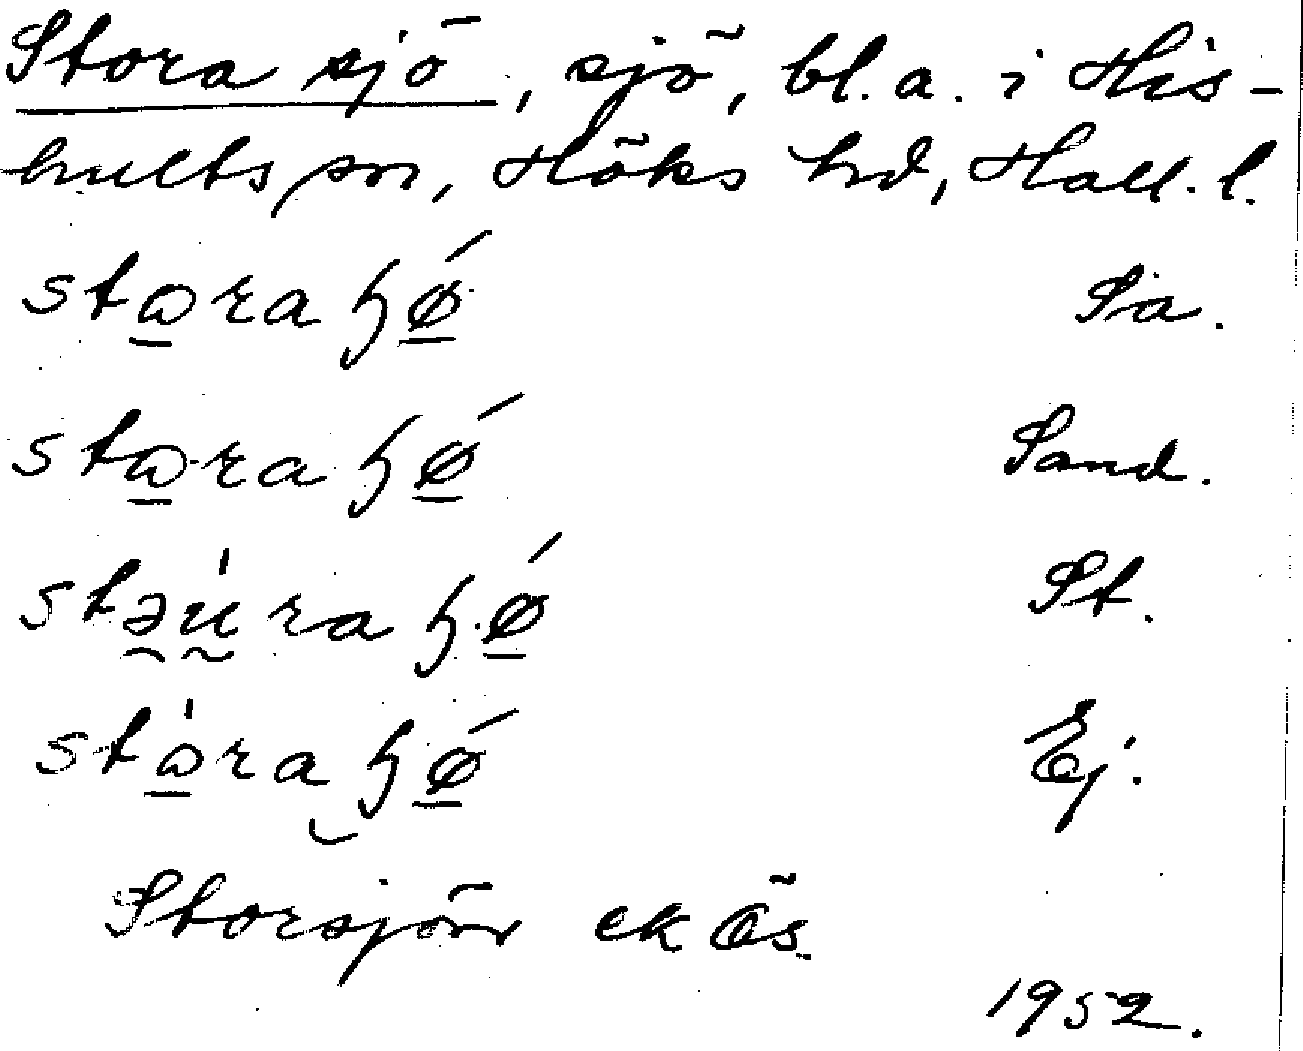 Stora sjö, sjö, bl.a. i His-
hults sn, Höks hd, Hall. l.
stɷra ɧǿ Sä.
stɷra ɧǿ Sand.
stəu̇ra ɧǿ St.
stɷ̇ra ɧǿ Ej.
Storsjön ek Ös.
1952.